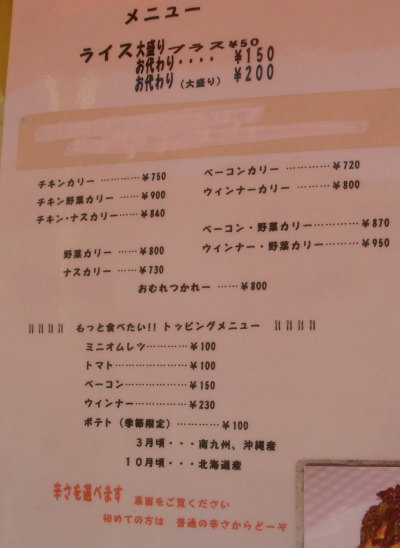 メニュー
ライス大盛りプラス¥50
お代わり・・・・ ¥150
お代わり（大盛り） ¥200
チキンカリー …………¥750
チキン野菜カリー ……¥900
チキン・ナスカリー……¥840
ベーコンカリー …………¥720
ウィンナーカリー ………¥800
野菜カリー ……¥800
ナスカリー ……¥730
ベーコン・野菜カリー…………¥870
ウィンナー・野菜カリー………¥950
おむれつかれー ……¥800
もっと食べたい!! トッピングメニュー
ミニオムレツ…………¥100
トマト…………………¥100
ベーコン………………¥150
ウィンナー……………¥230
ポテト（季節限定）…………¥100
3月頃・・・南九州、沖縄産
10月頃・・・北海道産
辛さを選べます 裏面をご覧ください
初めての方は 普通の辛さからどーぞ